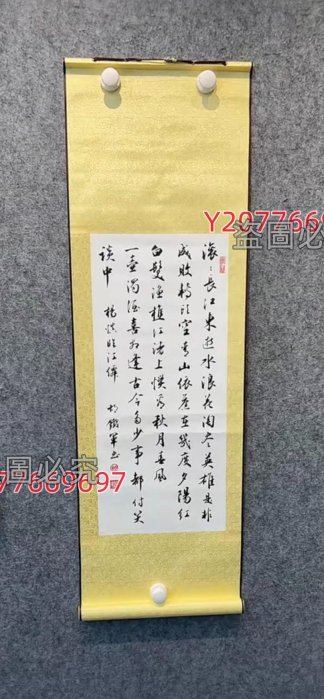 滚〻长江东逝水浪花淘尽英雄是非
成败转头空青山依旧在幾度夕陽红
白髮渔樵江渚上惯看秋月春風
一壶濁酒喜相逢古今多少事都付笑
谈中 杨慎临江仙 胡鐵軍书
Y2977669
盜圖必
圖必究
77669697